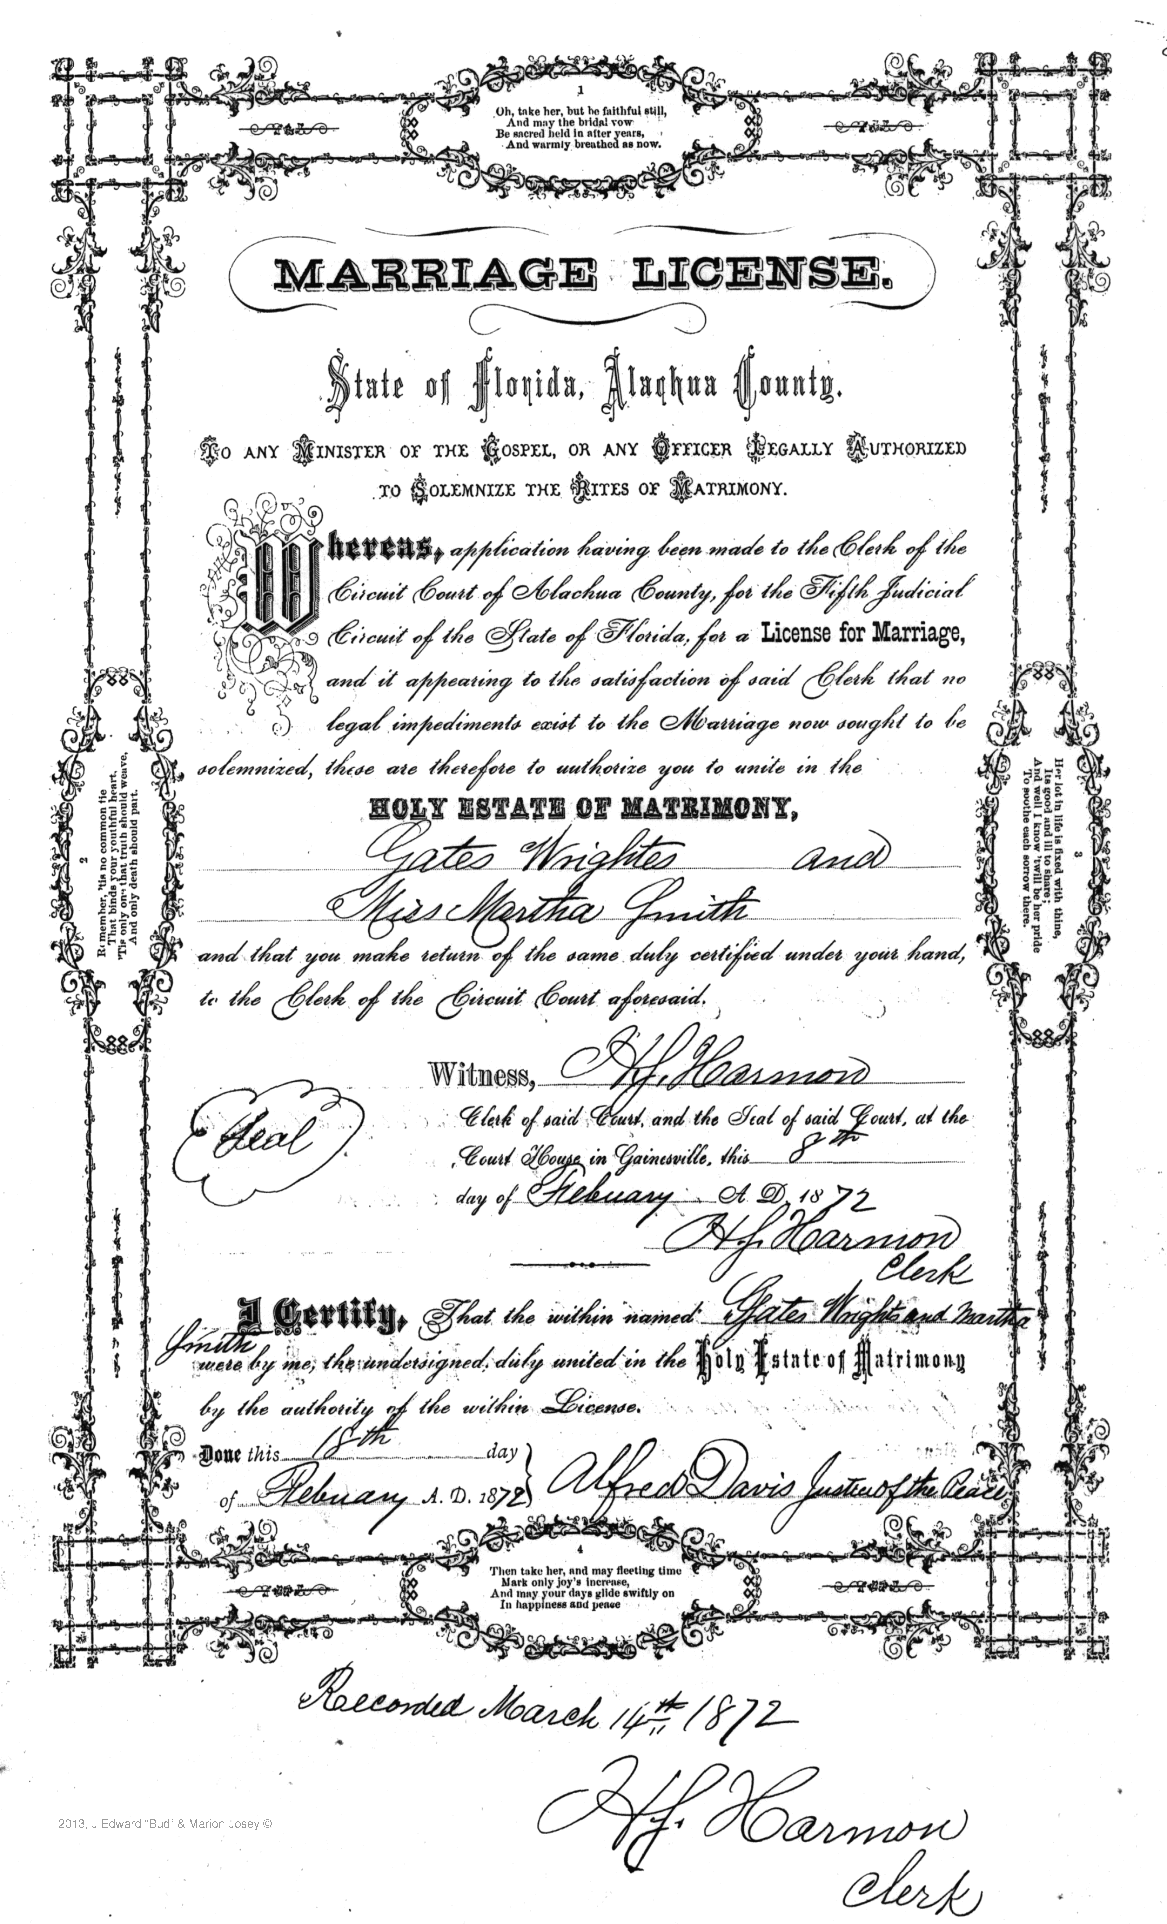 1
Oh, take her, but be faithful still,
And may the bridal vow
Be sacred held in after years,
And warmly breathed as now.
MARRIAGE LICENSE.
State of Florida, Alachua County.
TO ANY MINISTER OF THE GOSPEL, OR ANY OFFICER LEGALLY AUTHORIZED
TO SOLEMNIZE THE RITES OF MATRIMONY.
Whereas, application having been made to the Clerk of the
Circuit Court of Alachua County, for the Fifth Judicial
Circuit of the State of Florida, for a License for Marriage,
and it appearing to the satisfaction of said Clerk that no
legal impediments exist to the Marriage now sought to be
solemnized, these are therefore to authorize you to unite in the
HOLY ESTATE OF MATRIMONY,
Gates Wrightes and
Miss Martha Smith
and that you make return of the same duly certified under your hand,
to the Clerk of the Circuit Court aforesaid.
2
Remember, 'tis no common tie
That binds your youthful heart,
'Tis only one that truth should weave,
And only death should part.
3
Her lot in life is fixed with thine,
Its good and ill to share;
And well I know 'twill be her pride
To soothe each sorrow there.
Witness, H.J. Harmon
Seal
Clerk of said Court, and the Seal of said Court, at the
Court House in Gainesville, this 8th
day of Febuary A. D. 1872
H.J. Harmon
Clerk
I Certify, That the within named Gates Wrights and Martha
Smith
were by me, the undersigned, duly united in the Holy Estate of Matrimony
by the authority of the within License.
Done this 18th day
of Febuary A. D. 1872
Alfred Davis Justice of the Peace
4
Then take her, and may fleeting time
Mark only joy's increase,
And may your days glide swiftly on
In happiness and peace
Recorded March 14th 1872
H.J. Harmon
Clerk
2013, J Edward "Bud" & Marion Josey ©